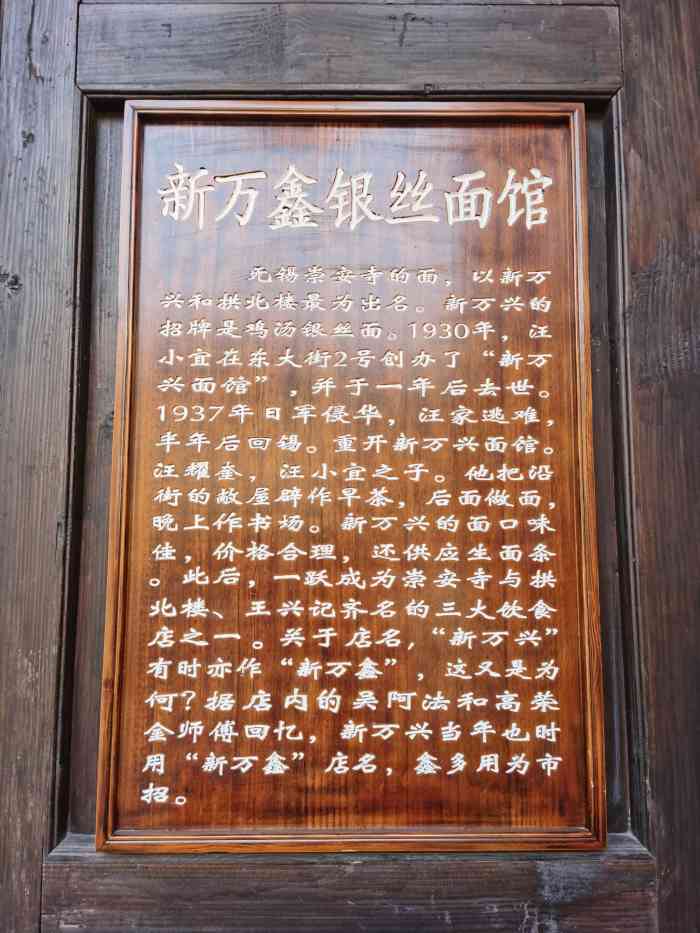 新万鑫银丝面馆
无锡崇安寺的面，以新万
兴和拱北楼最为出名。新万兴的
招牌是鸡汤银丝面。1930年，汪
小宜在东大街2号创办了“新万
兴面馆”，并于一年后去世。
1937年日军侵华，汪家逃难，
半年后回锡。重开新万兴面馆。
汪耀奎，汪小宜之子。他把沿
街的敞屋辟作早茶，后面做面，
晚上作书场。新万兴的面口味
佳，价格合理，还供应生面条
。此后，一跃成为崇安寺与拱
北楼、王兴记齐名的三大饮食
店之一。关于店名，“新万兴”
有时亦作“新万鑫”，这又是为
何？据店内的吴阿法和高荣
金师傅回忆，新万兴当年也时
用“新万鑫”店名，鑫多用为市
招。